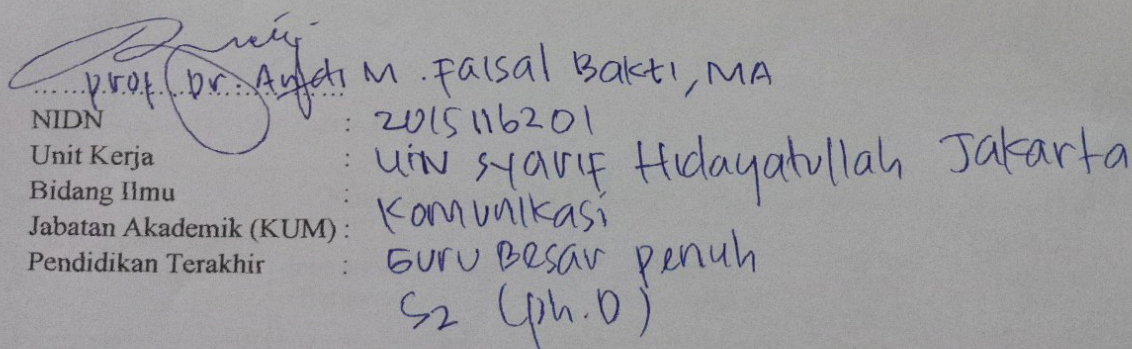 Prof. Dr. Andi M. Faisal Bakti, MA
NIDN : 2015116201
Unit Kerja : UIN Syarif Hidayatullah Jakarta
Bidang Ilmu : Komunikasi
Jabatan Akademik (KUM) : Guru Besar penuh
Pendidikan Terakhir : S2 (ph.D)